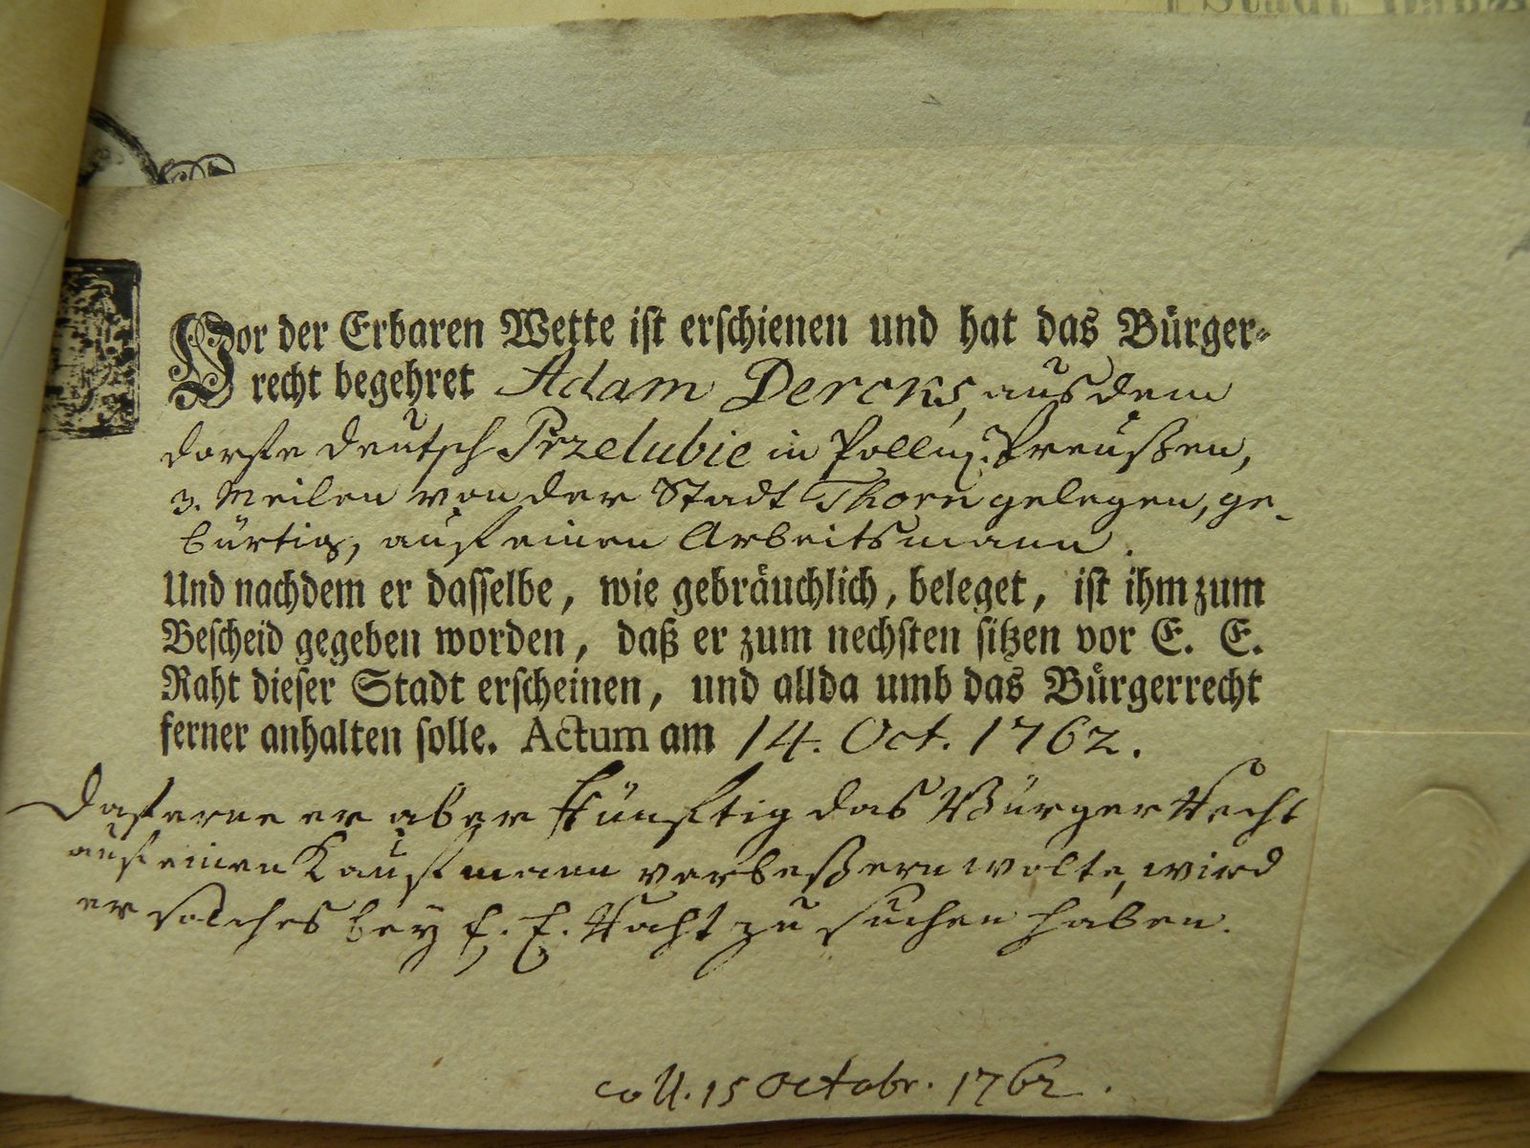 Vor der Erbaren Wette ist erschienen und hat das Bürger-
recht begehret Adam Dercks, aus dem
dorffe deutsch Przelubie in Polln. Preußen,
3. Meilen von der Stadt Thorn gelegen, ge-
bürtig, auf einen Arbeitsmann.
Und nachdem er dasselbe, wie gebräuchlich, beleget, ist ihm zum
Bescheid gegeben worden, daß er zum nechsten sitzen vor E. E.
Raht dieser Stadt erscheinen, und allda umb das Bürgerrecht
ferner anhalten solle. Actum am 14. Oct. 1762.
Daferne er aber künftig das Bürger Recht
auf einen Kaufmann verbeßern wolte, wird
er solches bey E. E. Raht zu suchen haben.
coll. 15 Octobr. 1762.